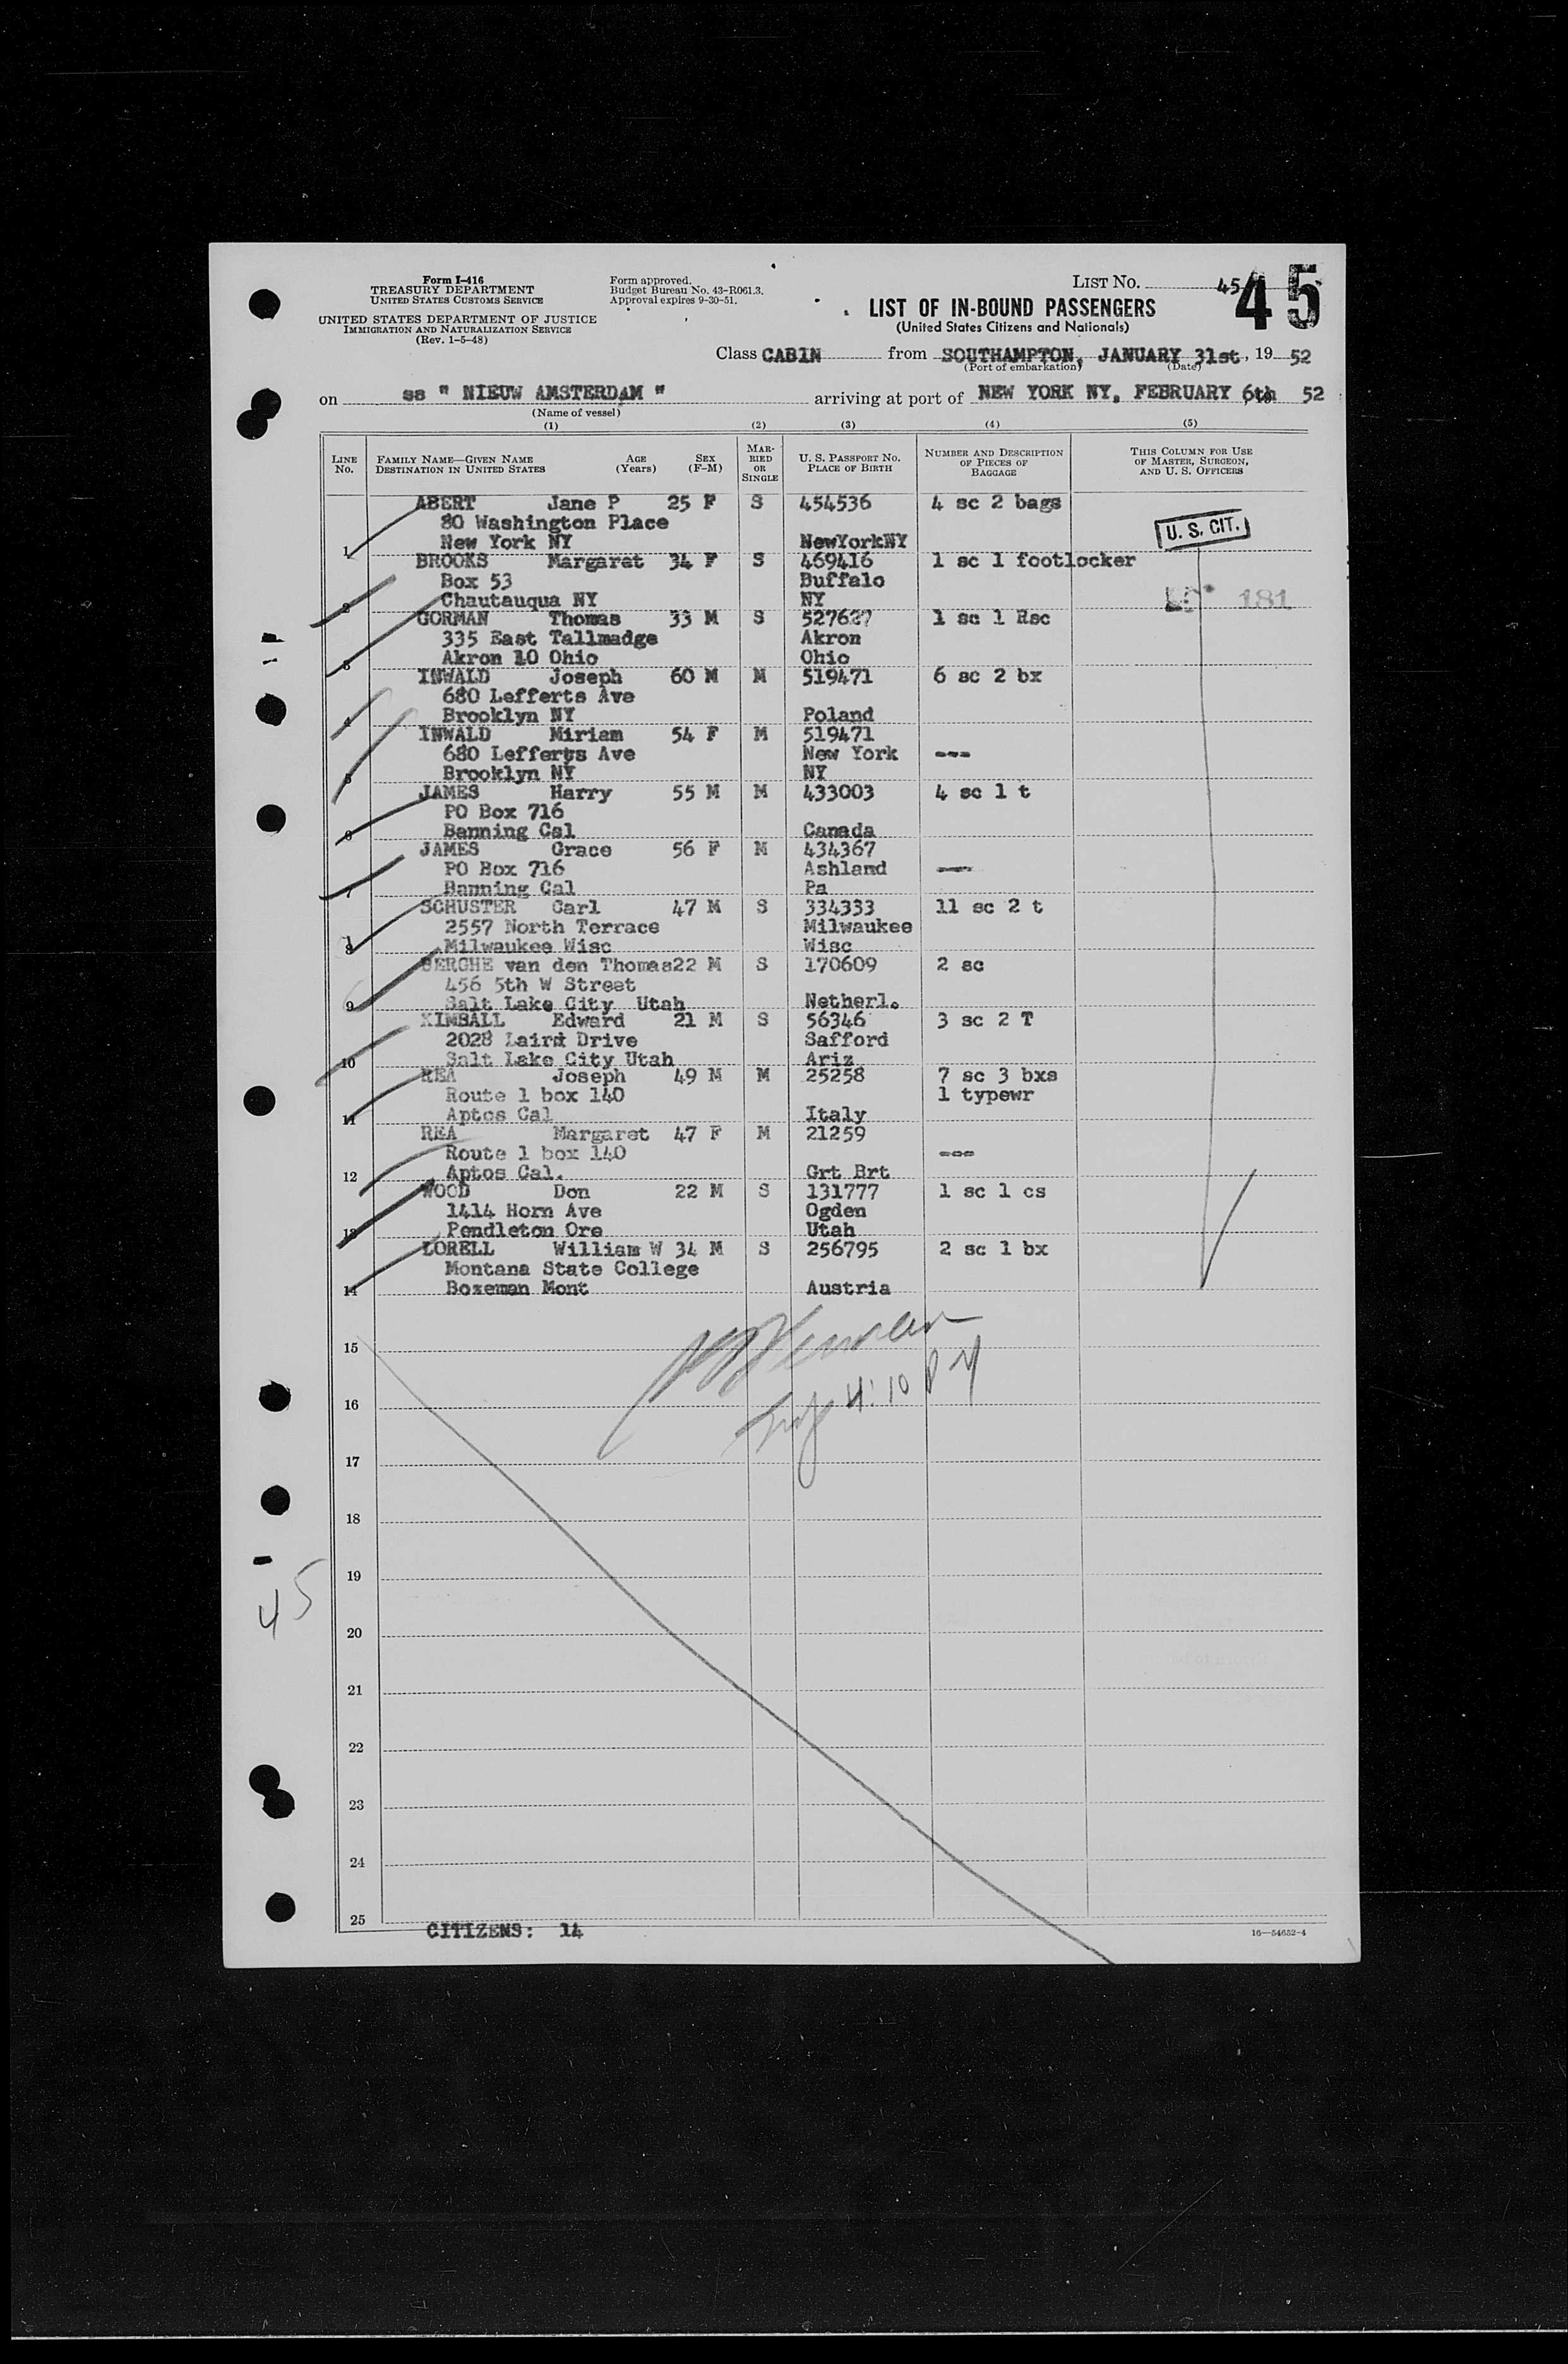 Form I-416
TREASURY DEPARTMENT
UNITED STATES CUSTOMS SERVICE
UNITED STATES DEPARTMENT OF JUSTICE
IMMIGRATION AND NATURALIZATION SERVICE
(Rev. 1-5-48)
Form approved.
Budget Bureau No. 43-R061.3.
Approval expires 9-30-51.
LIST No. 45
45
LIST OF IN-BOUND PASSENGERS
(United States Citizens and Nationals)
Class CABIN from SOUTHAMPTON, JANUARY 31st, 19 52
(Port of embarkation) (Date)
on ss " NIEUW AMSTERDAM " arriving at port of NEW YORK NY, FEBRUARY 6th 52
(Name of vessel)
(1) (2) (3) (4) (5)
LINE No. FAMILY NAME—GIVEN NAME DESTINATION IN UNITED STATES AGE (Years) SEX (F-M) MARRIED OR SINGLE U. S. PASSPORT No. PLACE OF BIRTH NUMBER AND DESCRIPTION OF PIECES OF BAGGAGE THIS COLUMN FOR USE OF MASTER, SURGEON, AND U. S. OFFICERS
ABERT Jane P 25 F S 454536 4 sc 2 bags
80 Washington Place
1 New York NY NewYorkNY
U. S. CIT.
BROOKS Margaret 34 F S 469416 1 sc 1 footlocker
Box 53 Buffalo
2 Chautauqua NY NY
181
GORMAN Thomas 33 M S 527627 1 sc 1 Rsc
335 East Tallmadge Akron
3 Akron 10 Ohio Ohio
INWALD Joseph 60 M M 519471 6 sc 2 bx
680 Lefferts Ave
4 Brooklyn NY Poland
INWALD Miriam 54 F M 519471
680 Lefferts Ave New York ---
5 Brooklyn NY NY
JAMES Harry 55 M M 433003 4 sc 1 t
PO Box 716
6 Banning Cal Canada
JAMES Grace 56 F M 434367
PO Box 716 Ashland ---
7 Banning Cal Pa
SCHUSTER Carl 47 M S 334333 11 sc 2 t
2557 North Terrace Milwaukee
8 Milwaukee Wisc Wisc
BERGHE van den Thomas22 M S 170609 2 sc
456 5th W Street
9 Salt Lake City Utah Netherl.
KIMBALL Edward 21 M S 56346 3 sc 2 T
2028 Laird Drive Safford
10 Salt Lake City Utah Ariz
REA Joseph 49 M M 25258 7 sc 3 bxs
Route 1 box 140 1 typewr
11 Aptos Cal Italy
REA Margaret 47 F M 21259
Route 1 box 140 ---
12 Aptos Cal. Grt Brt
WOOD Don 22 M S 131777 1 sc 1 cs
1414 Horn Ave Ogden
13 Pendleton Ore Utah
LORELL William W 34 M S 256795 2 sc 1 bx
Montana State College
14 Bozeman Mont Austria
15
4:10 P M
16
17
18
19
45
20
21
22
23
24
25
CITIZENS: 14
16—54652-4